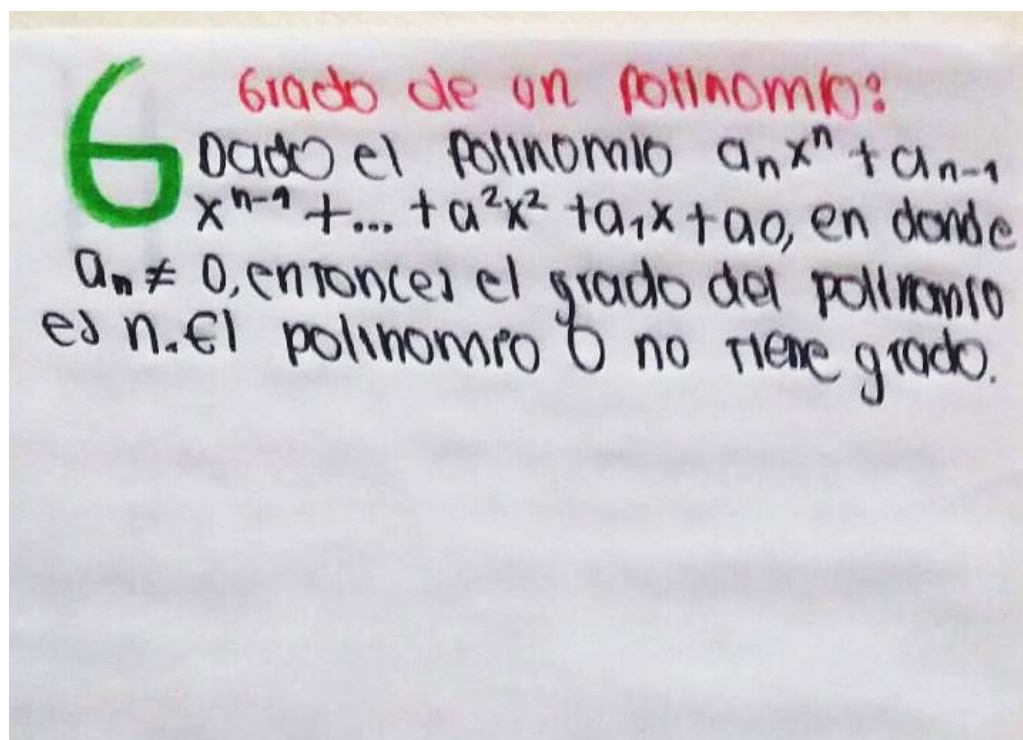 6 Grado de un Polinomio:
Dado el Polinomio aₙxⁿ + aₙ₋₁
xⁿ⁻¹ +... + a²x² + a₁x + a0, en donde
aₙ ≠ 0, entonces el grado del polinomio
es n. El polinomio 0 no tiene grado.